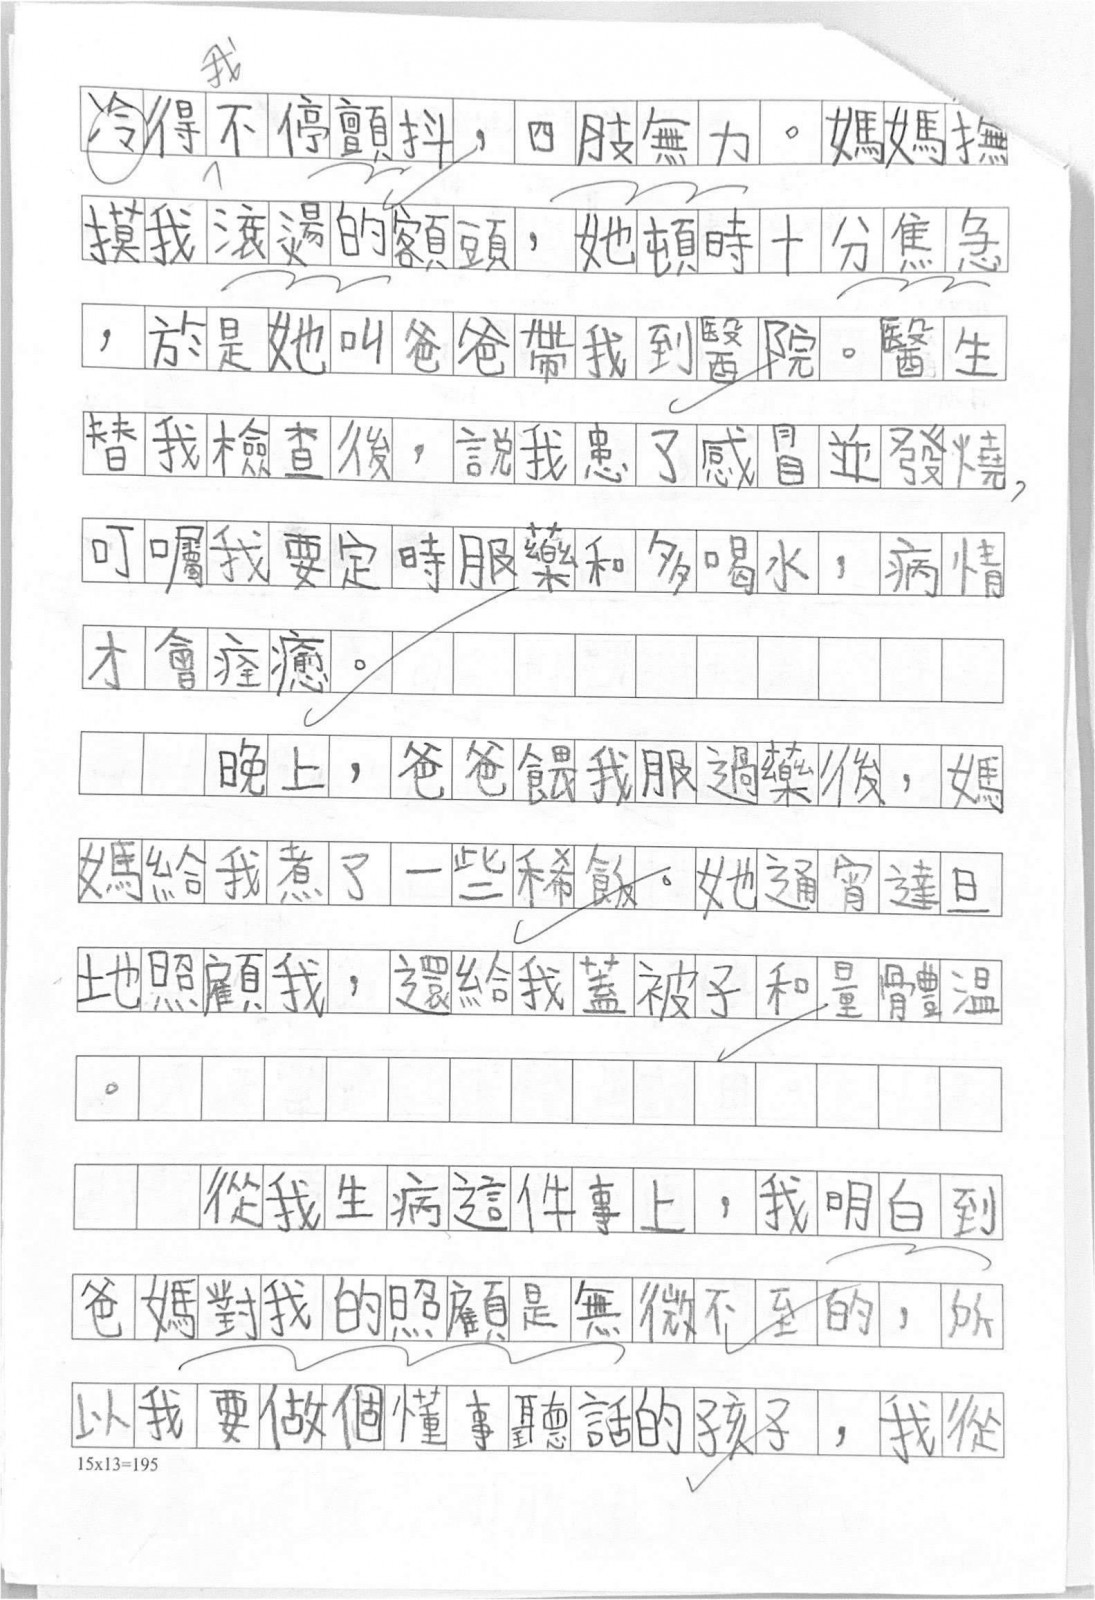 我
冷得不停顫抖，四肢無力。媽媽撫
摸我滾燙的額頭，她頓時十分焦急
，於是她叫爸爸帶我到醫院。醫生
替我檢查後，說我患了感冒並發燒，
叮囑我要定時服藥和多喝水，病情
才會痊癒。
晚上，爸爸餵我服過藥後，媽
媽給我煮了一些稀飯。她通宵達旦
地照顧我，還給我蓋被子和量體溫
。
從我生病這件事上，我明白到
爸媽對我的照顧是無微不至的，所
以我要做個懂事聽話的孩子，我從
15x13=195